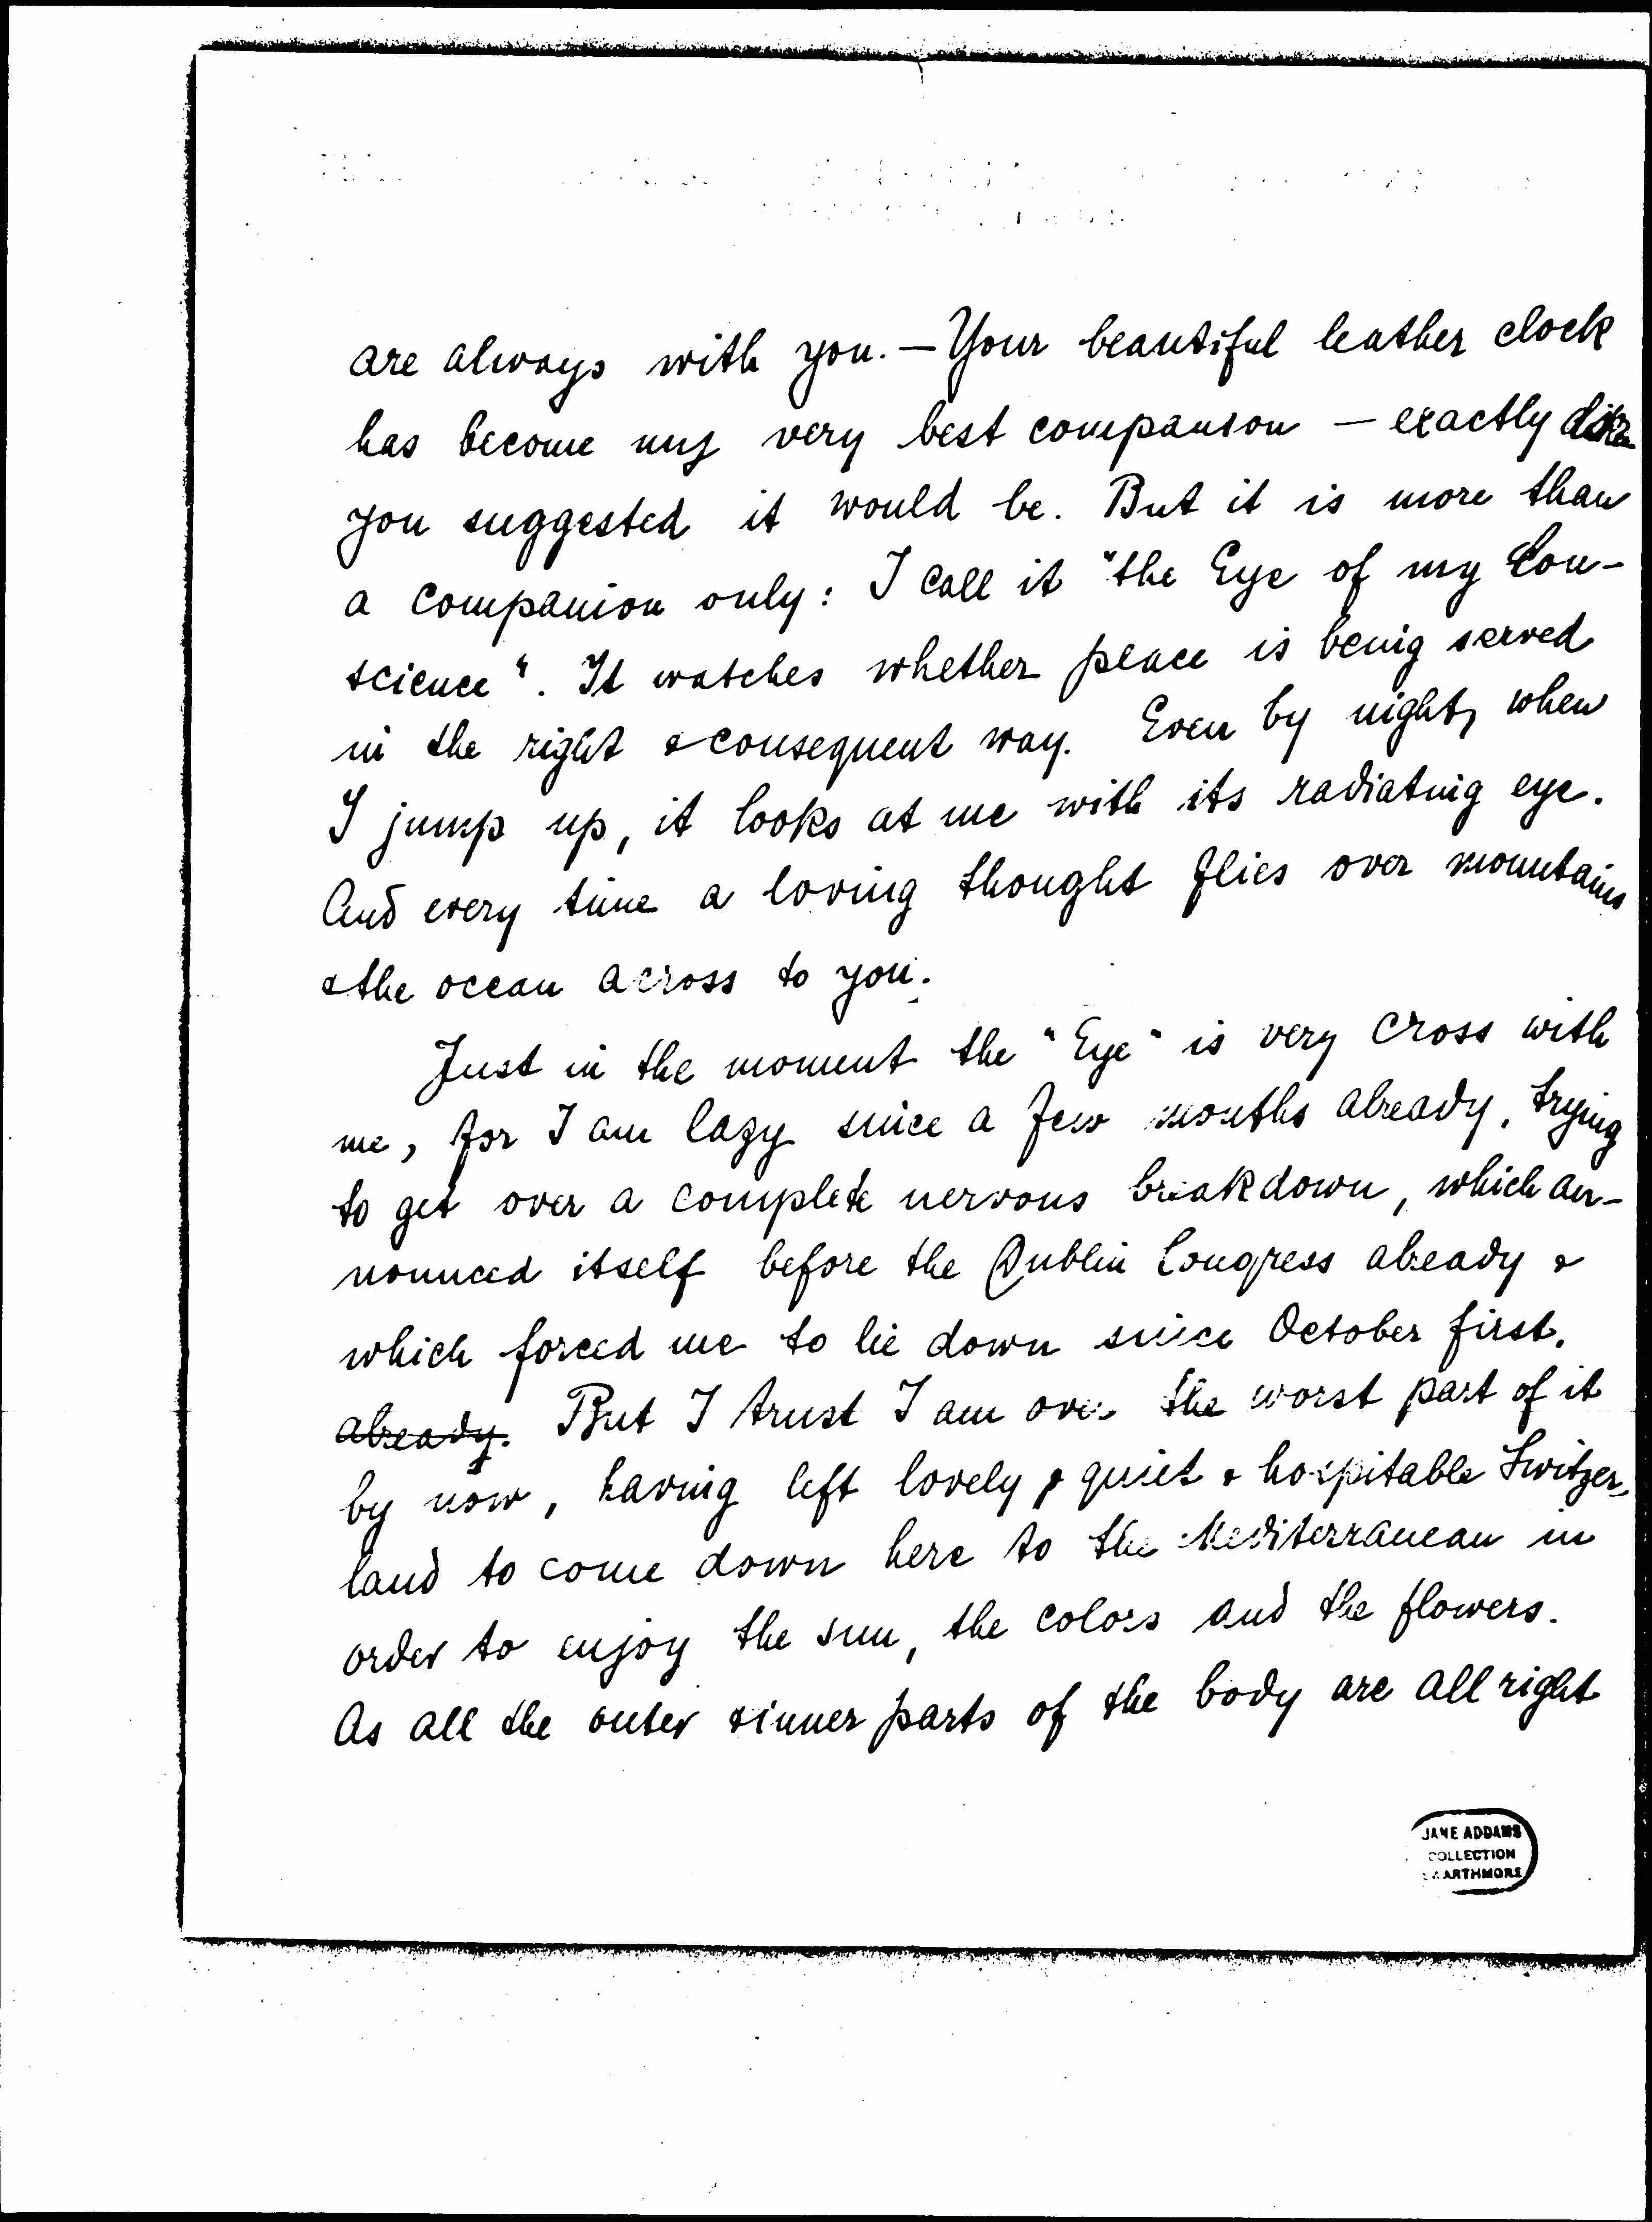 are always with you. — Your beautiful leather clock
has become my very best companion — exactly like
you suggested it would be. But it is more than
a companion only: I call it "the Eye of my Con-
science". It watches whether peace is being served
in the right & consequent way. Even by night, when
I jump up, it looks at me with its radiating eye.
And every time a loving thought flies over mountains
& the ocean across to you.
Just in the moment the "Eye" is very cross with
me, for I am lazy since a few months already, trying
to get over a complete nervous breakdown, which an-
nounced itself before the Dublin Congress already &
which forced me to lie down since October first.
already. But I trust I am over the worst part of it
by now, having left lovely & quiet & hospitable Switzer-
land to come down here to the Mediterranean in
order to enjoy the sun, the colors and the flowers.
As all the outer & inner parts of the body are all right
JANE ADDAMS
COLLECTION
SWARTHMORE